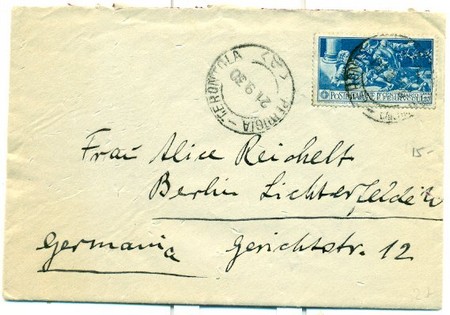 PERUGIA - TERONTOLA
21.9.30
15-
Frau Alice Reichelt
Berlin Lichterfelde
Germania Gerichtstr. 12